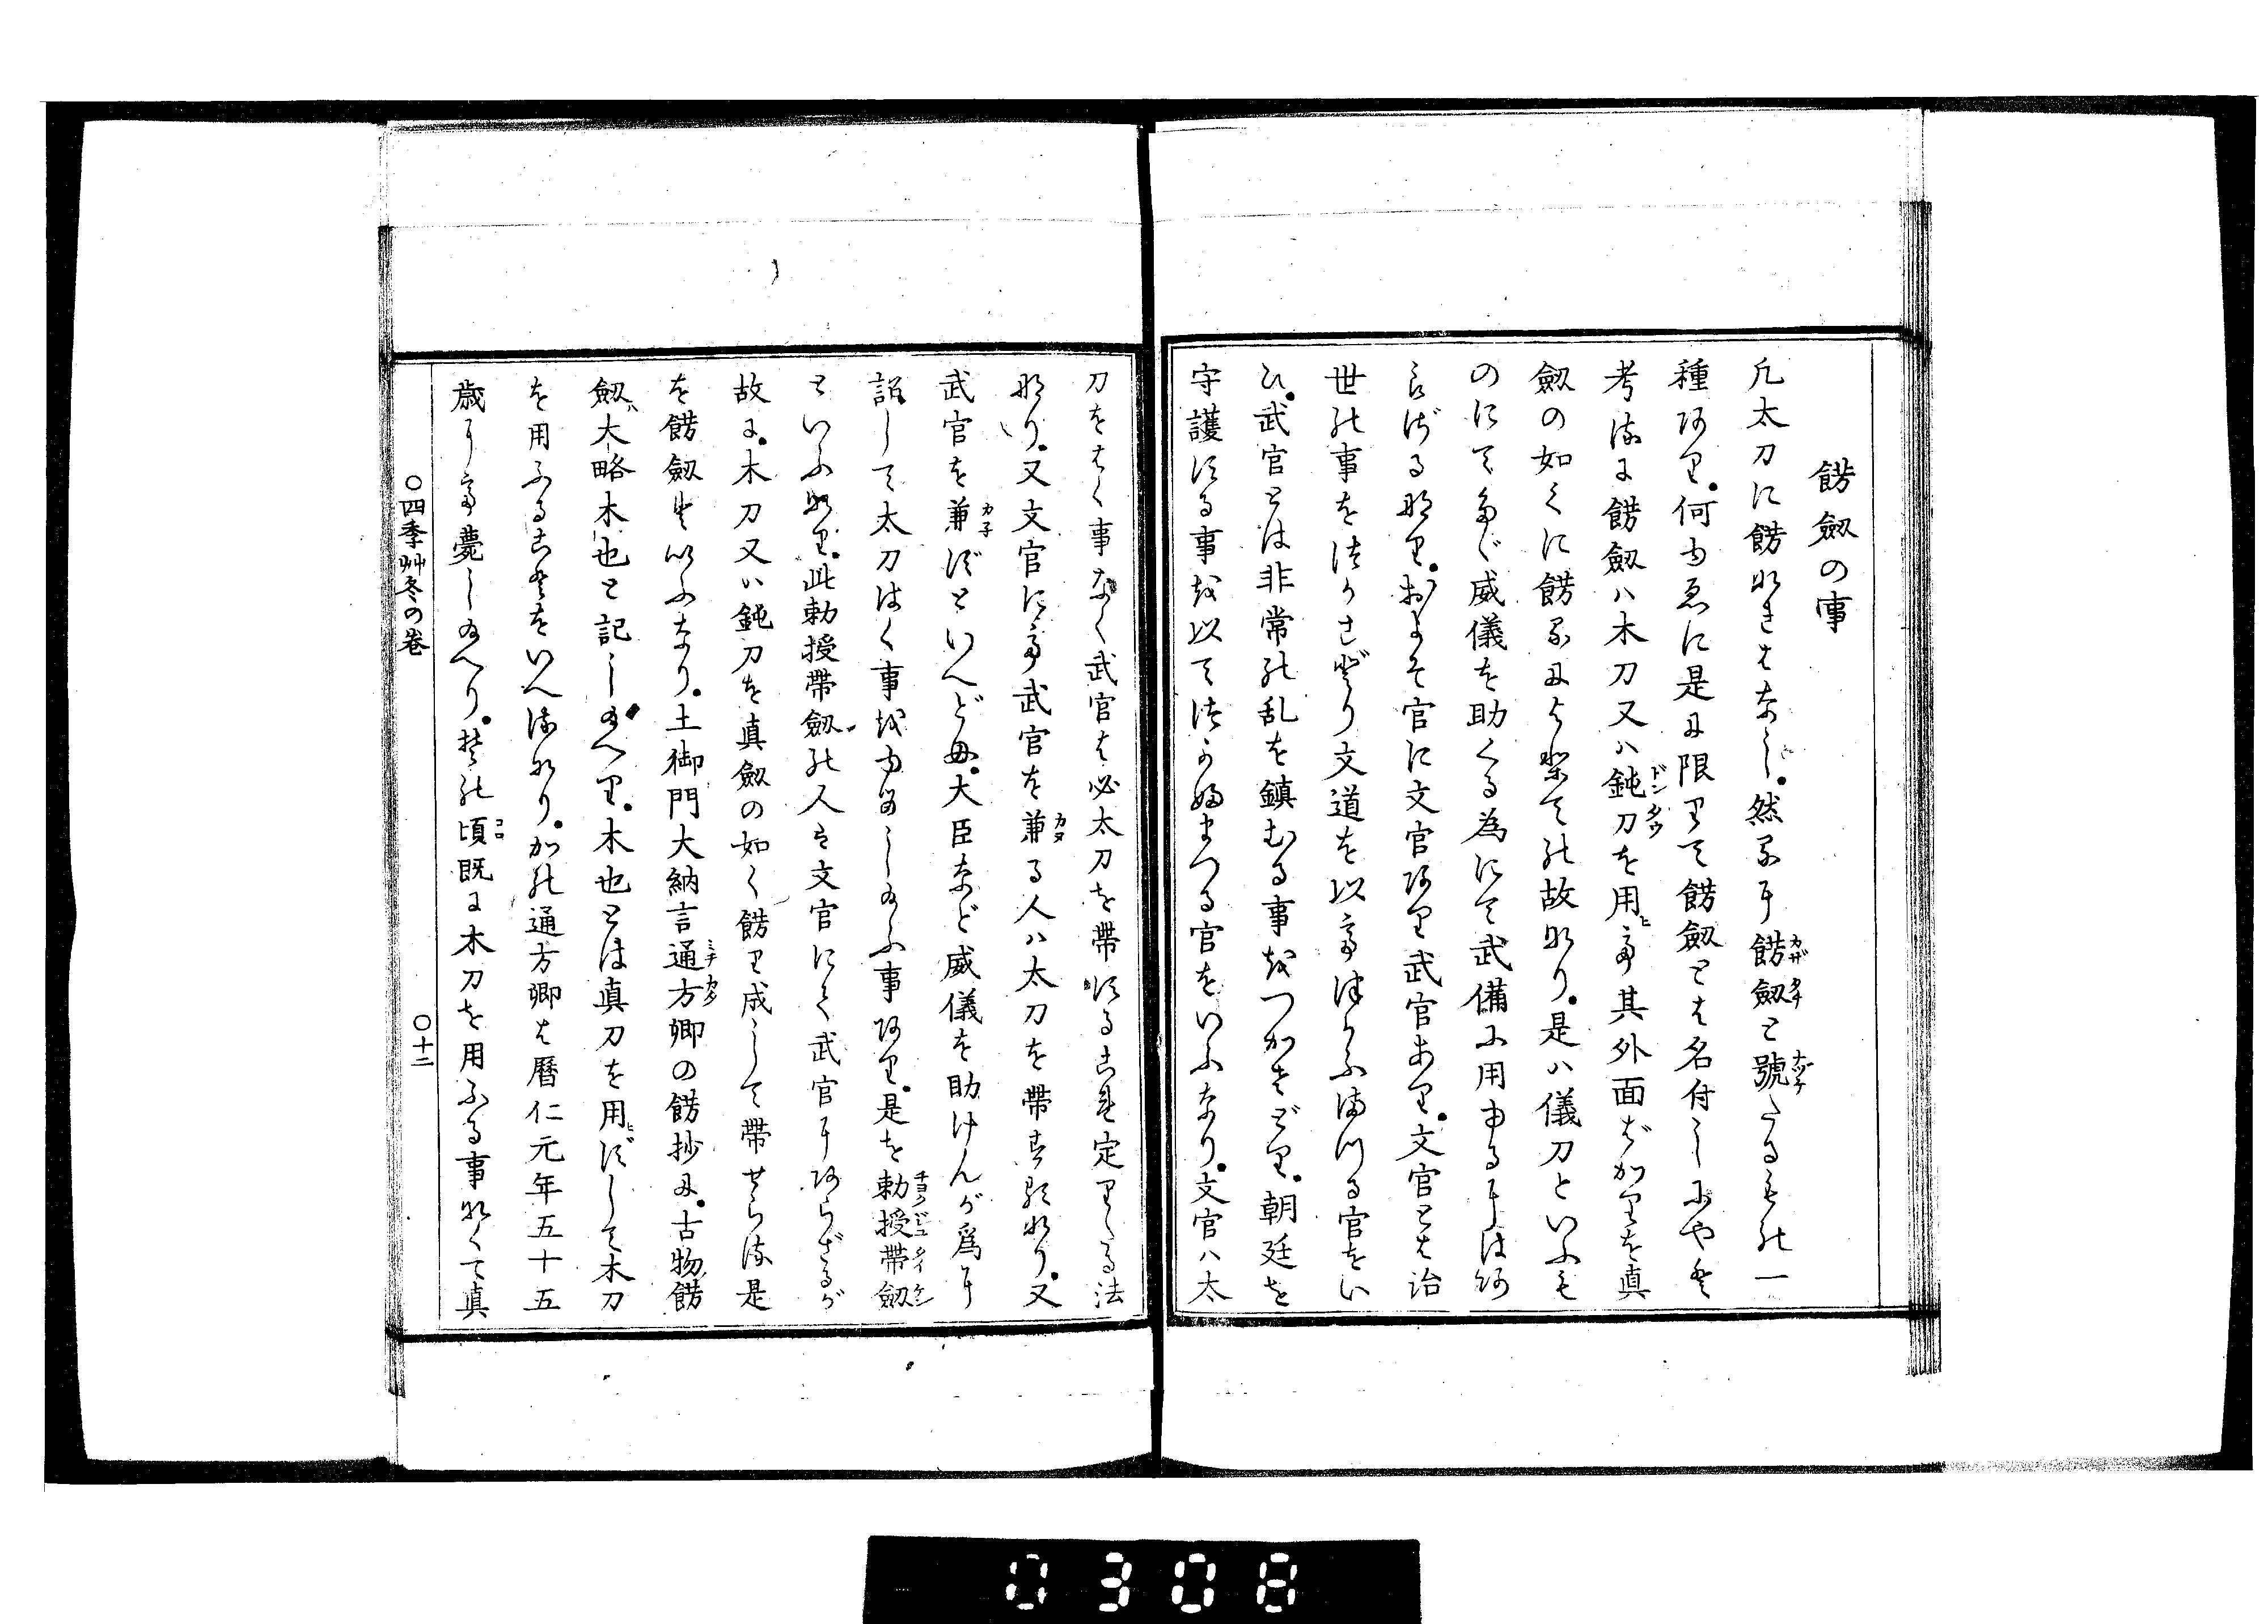 餝劔の事
凡太刀に餝なきはなし。然るに餝劔と號たるもの一
種あり。何ゆゑに是に限りて餝劔とは名付しにやと
考るに餝劔ハ木刀又ハ鈍刀を用ヒて其外面ばかりを真
劔の如くに餝るによりての故なり。是ハ儀刀といふも
のにてたゞ威儀を助くる為にて武備に用ゆるにはあ
らざるなり。おほよそ官に文官あり武官あり。文官とは治
世の事をつかさどり文道を以てつかふまつる官をい
ひ。武官とは非常の乱を鎮むる事をつかさどり。朝廷を
守護する事を以てつかふまつる官をいふなり。文官ハ太
刀をはく事なく武官は必太刀を帯することに定りたる法
なり。又文官にて武官を兼る人ハ太刀を帯する例なり。又
武官を兼ずといへども。大臣など威儀を助けんが為に
詔して太刀はく事をゆるし給ふ事あり。是を勅授帯劔
といふなり。此勅授帯劔の人は文官にて武官にあらざるが
故に。木刀又ハ鈍刀を真劔の如く餝り成して帯せらる是
を餝劔といふなり。土御門大納言通方卿の餝抄に。古物餝
劔ハ大略木也と記し給へり。木也とは真刀を用ヒずして木刀
を用ふることをいへるなり。かの通方卿は暦仁元年五十五
歳にて薨し給へり。其の頃既に木刀を用ふる事なくて真
○四季艸冬の巻
○十二
カザタチ
ナヅケ
ドンタウ
カヌ
カネ
チヨクジユタイケン
ミチカタ
コロ
0308